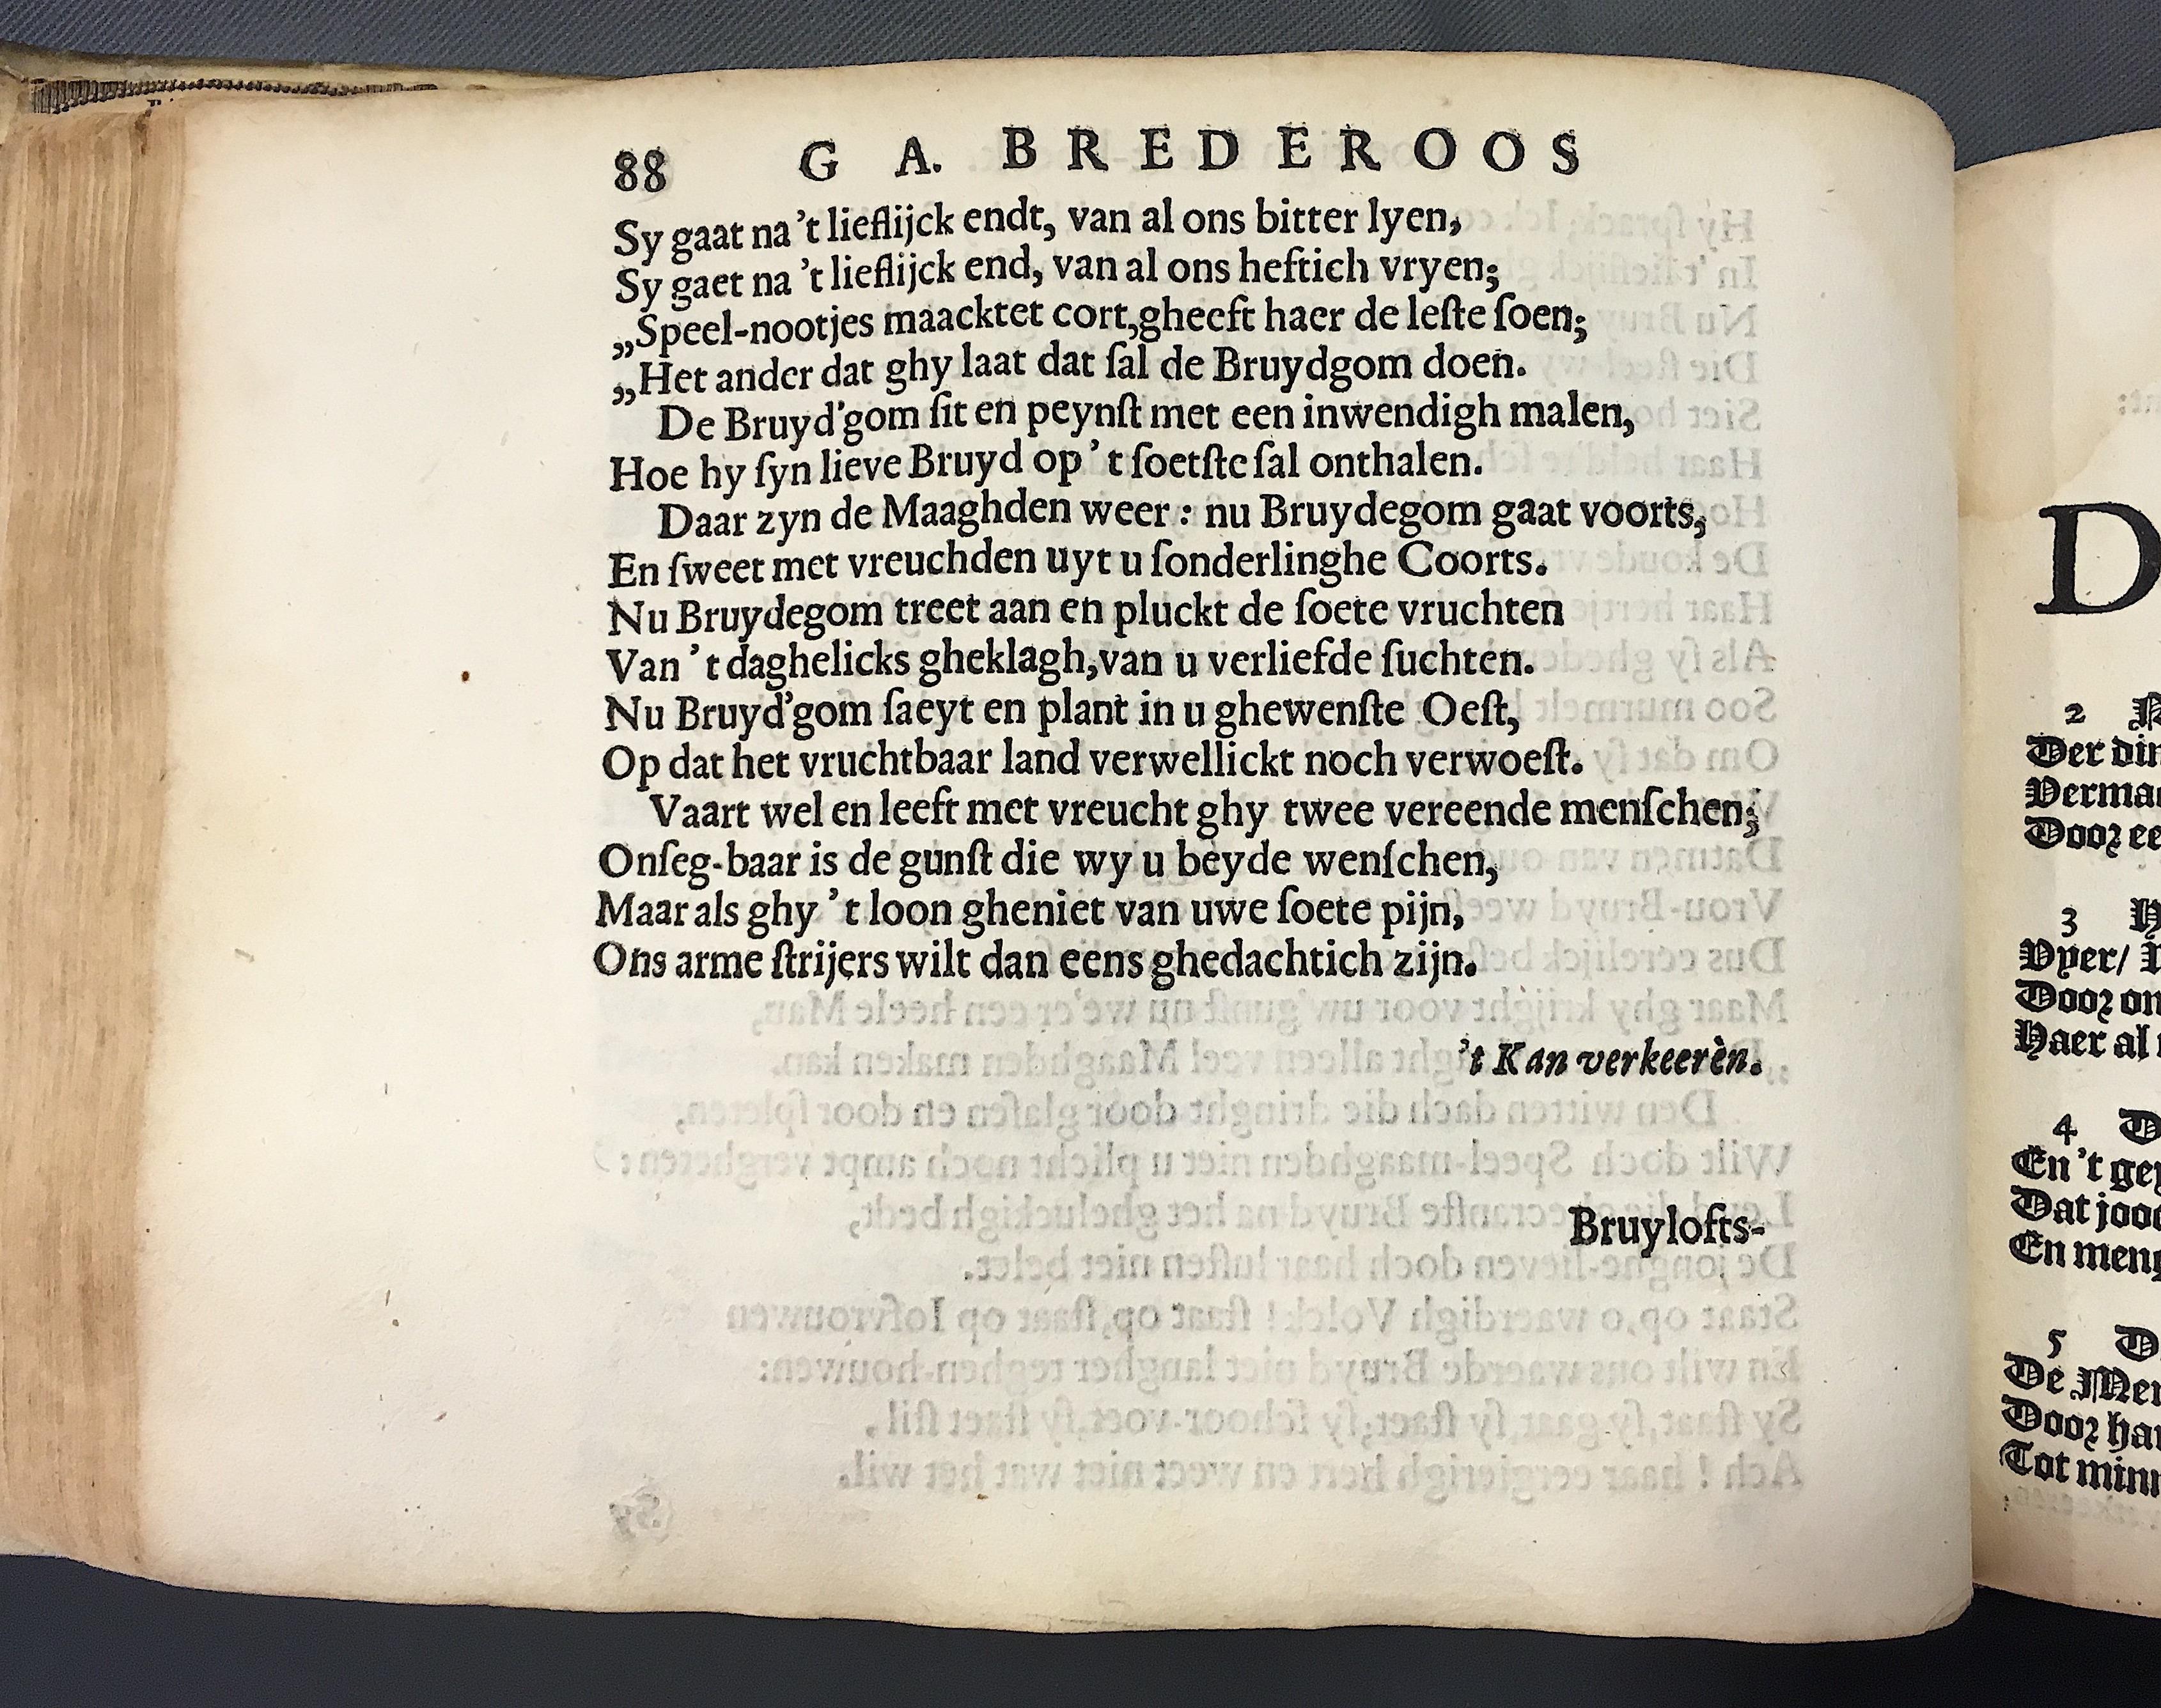 88 G A. BREDEROOS
Sy gaat na 't lieflijck endt, van al ons bitter lyen,
Sy gaet na 't lieflijck end, van al ons heftich vryen;
„Speel-nootjes maacktet cort,gheeft haer de leſte ſoen;
„Het ander dat ghy laat dat ſal de Bruydgom doen.
De Bruyd'gom ſit en peynſt met een inwendigh malen,
Hoe hy ſyn lieve Bruyd op 't ſoetſte ſal onthalen.
Daar zyn de Maaghden weer : nu Bruydegom gaat voorts,
En ſweet met vreuchden uyt u ſonderlinghe Coorts.
Nu Bruydegom treet aan en pluckt de ſoete vruchten
Van 't daghelicks gheklagh,van u verliefde ſuchten.
Nu Bruyd'gom ſaeyt en plant in u ghewenſte Oeſt,
Op dat het vruchtbaar land verwellickt noch verwoeſt.
Vaart wel en leeft met vreucht ghy twee vereende menſchen;
Onſeg-baar is de gunſt die wy u beyde wenſchen,
Maar als ghy 't loon gheniet van uwe ſoete pijn,
Ons arme ſtrijers wilt dan eens ghedachtich zijn.
't Kan verkeerèn.
Bruylofts-
D
2
Der
3
Vyer/
Door
Haer al
4
En 't
Dat
En
5
De
Door
Tot